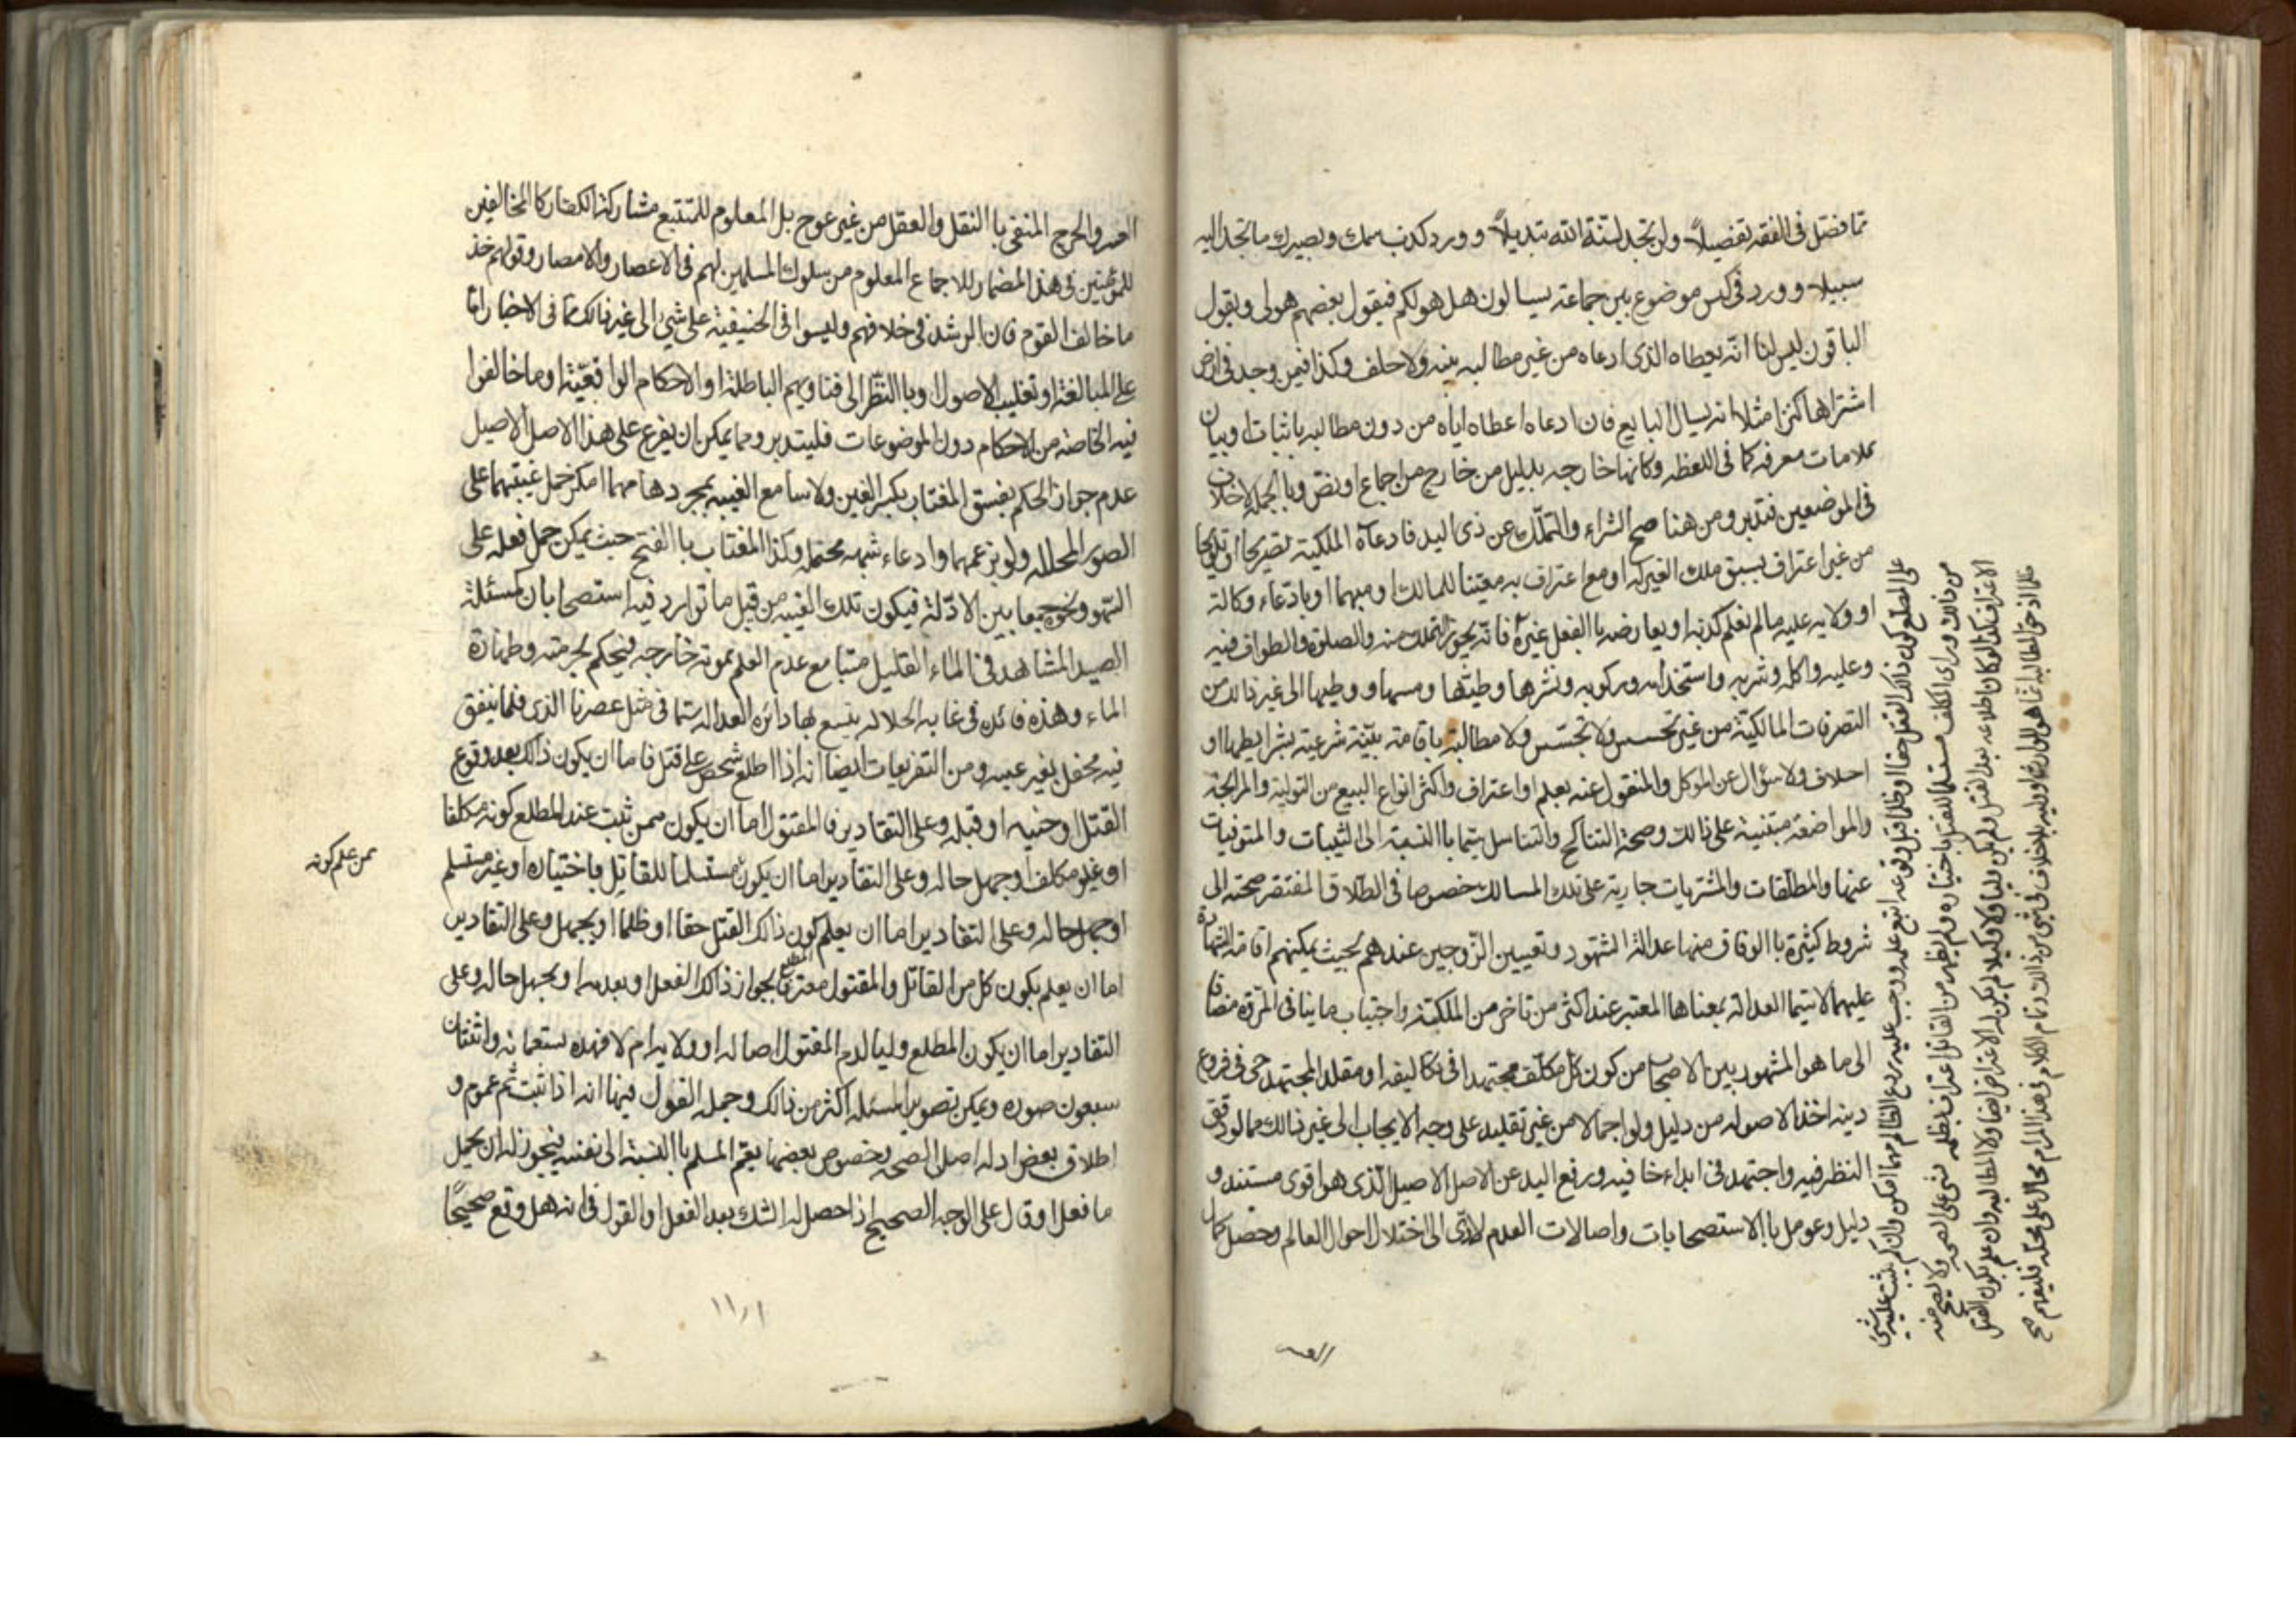 مما فصّل فى الفقه تفصيلاً ولن تجد لسنة الله تبديلاً وورد كذب سمعك وبصرك ما تجد اليه
سبيلا وورد فى كيس موضوع بين جماعة يسالون هل هو لكم فيقول بعضهم هو لى ويقول
الباقون ليس لنا انه يعطاه الذى ادعاه من غير مطالبه بينه ولا حلف وكذا فيمن وجد فى ارض
اشتراها كنزا مثلا انه يسال البايع فان ادعاه اعطاه اياه من دون مطالبه باثبات او بيان
علامات معرفه كما فى اللقطه وكانها خارجه بدليل من خارج من اجماع او نصّ وبالجمله لاخلاف
فى الموضعين فتدبر ومن هنا صح الشراء والتملّك عن ذى اليد فادعآء الملكية تصريحا او تلويحا
من غير اعتراف بسبق ملك الغير له او مع اعتراف به معيّنا للمالك او مبهما او بادّعاء وكالة
او ولايه عليه ما لم نعلم كذبه او يعارضه بالفعل غيره فانّه يجوز التملك منه والصلوة والطواف فيه
وعليه واكله وشربه واستخدامه وركوبه ونشرها وطيّها ومسها ووطيها الى غير ذالك من
التصرفات المالكيّة من غير تحسس ولا تجسّس ولا مطالبة باقامة بيّنة شرعية بشرايطها او
احلاف ولا سؤال عن الموكل والمنقول عنه بعلم او اعتراف واكثر انواع البيع من التولية والمرابحة
والمواضعة مبتنية على ذالك وصحة التناكح والتناسل سيّما باالنسبة الى الثيبات والمتوفيات
عنها والمطلّقات والمشتريات جارية على تلك المسالك خصوصا فى الطلاق المفتقر صحته الى
شروط كثيرة باالوفاق منها عدالة الشهود وتعيين الزّوجين عندهم بحيث يمكنهم اقامة الشهادة
عليهما لا سيّما العدالة بمعناها المعتبر عند اكثر من تاخر من الملكة واجتياب ما ينافى المروه مضافا
الى ما هو المشهور بين الاصحاب من كون كل مكلّف مجتهدا فى تكاليفه او مقلد المجتهد حى فى فروع
دينه اخذ الاصوله من دليل ولو اجمالا من غير تقليد على وجه الايجاب الى غير ذالك مما لو دقق
النظر فيه واجتهد فى ابداء خافيه ورفع اليد عن الاصل الاصيل الّذى هو اقوى مستند و
دليل وعومل باالاستصحابات واصالات العدم لادّى الى اختلال احوال العالم وحصل كمال
على المطلع كون ذالك القتل حقا او ظلما قبل وقوعه اتبع علمه ووجب عليه ردع الظالم مهما امكن وان لم يثبت عليه شئ
من ذالك وراى المكلف مستسلما للقتل باختياره ولم يظهر من القاتل اعتراف بظلمه بنى على الصحه ولا يصح منه
الاعتراف بكذا لو كان اطلاعه بعد القتل ولم يكن وليا ولا وكيلا لم يكن له الاعتراض ايضا ولا المطالبه وان علم بكون القتل
ظلما اذ حق المطالبه انما هو للوارث او وليه بلا خلاف فى شئ من ذالك وتمام الكلام فى هذا المرام محال على محله فليفهم صح
العسر
العسر والحرج المنفى باالنقل والعقل من غير عوج بل المعلوم للمتتبع مشاركة الكفار كالمخالفين
للمؤمنين فى هذا المضمار للاجماع المعلوم من سلوك المسلمين لهم فى الاعصار والامصار وقولهم خذ
ما خالف القوم فان الرشد فى خلافهم وليسوا فى الحنيفية على شئ الى غير ذالك مما فى الاخبار امّا
على المبالغة او تغليب الاصول او باالنظر الى فتاويهم الباطلة او الاحكام الواقعيّة او ما خالفوا
فيه الخاصه من الاحكام دون الموضوعات فليتدبر ومما يمكن ان يفرع على هذا الاصل الاصيل
عدم جواز الحكم بفسق المغتاب بكسر الغين ولا سامع الغيبه بمجردها مهما امكن حمل غيبتهما على
الصور المحلله ولو بزعمهما وادعاء شبهه محتمله وكذا المغتاب باالفتح حيث يمكن حمل فعله على
السّهو ونحوه جمعا بين الادّلة فيكون تلك الغيبه من قبل ما توارد فيه استصحابان كمسئلة
الصيد المشاهد فى الماء القليل ميتا مع عدم العلم بموته خارجه فيحكم بحرمته وطهارة
الماء وهذه فائده فى غايه الجلاله يتسع بها دائره العداله سيّما فى مثل عصرنا الذى قلما يتفق
فيه محفل بغير غيبه ومن التفريعات ايضا انه اذا اطلع شخص على قتل فاما ان يكون ذالك بعد وقوع
القتل او حينه او قبله وعلى التقادير فالمقتول اما ان يكون ممن ثبت عند المطلع كونه مكلفا
ممن علم كونه
او غير مكلف او جهل حاله وعلى التقادير اما ان يكون مستسلما للقاتل باختياره او غير مستسلم
او جهل حاله وعلى التقادير اما ان يعلم المطلع كون ذالك القتل حقا او ظلما او يجهل وعلى التقادير
اما ان يعلم بكون كل من القاتل والمقتول معترفا بجواز ذالك الفعل او بعدمه او يجهل حاله وعلى
التقادير اما ان يكون المطلع وليا لدم المقتول اصاله او ولايه ام لا فهذه تسعمائه واثنتان
سبعون صوره ويمكن تصوير المسئله اكثر من ذالك وجمله القول فيها انه اذا ثبت ثم عموم و
اطلاق بعض ادله اصل الصحه بخصوص بعضها يعم المسلم باالنسبة الى نفسه فيجوز له ان يحمل
ما فعل او قال على الوجه الصحيح اذا حصل له الشك بعد الفعل او القول فى انه هل وقع صحيحًا